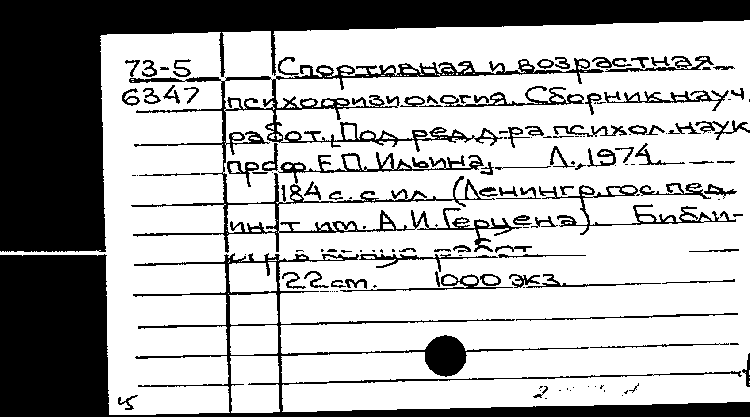 73-5 Спортивная и возрастная
6347 психофизиология. Сборник науч.
работ. Под ред. д-ра психол. наук
проф. Е.П. Ильина, Л., 1974.
184 с. с ил. (Ленингр. гос. пед.
ин-т им. А.И. Герцена). Библи-
в конце работ
22 см. 1000 экз.